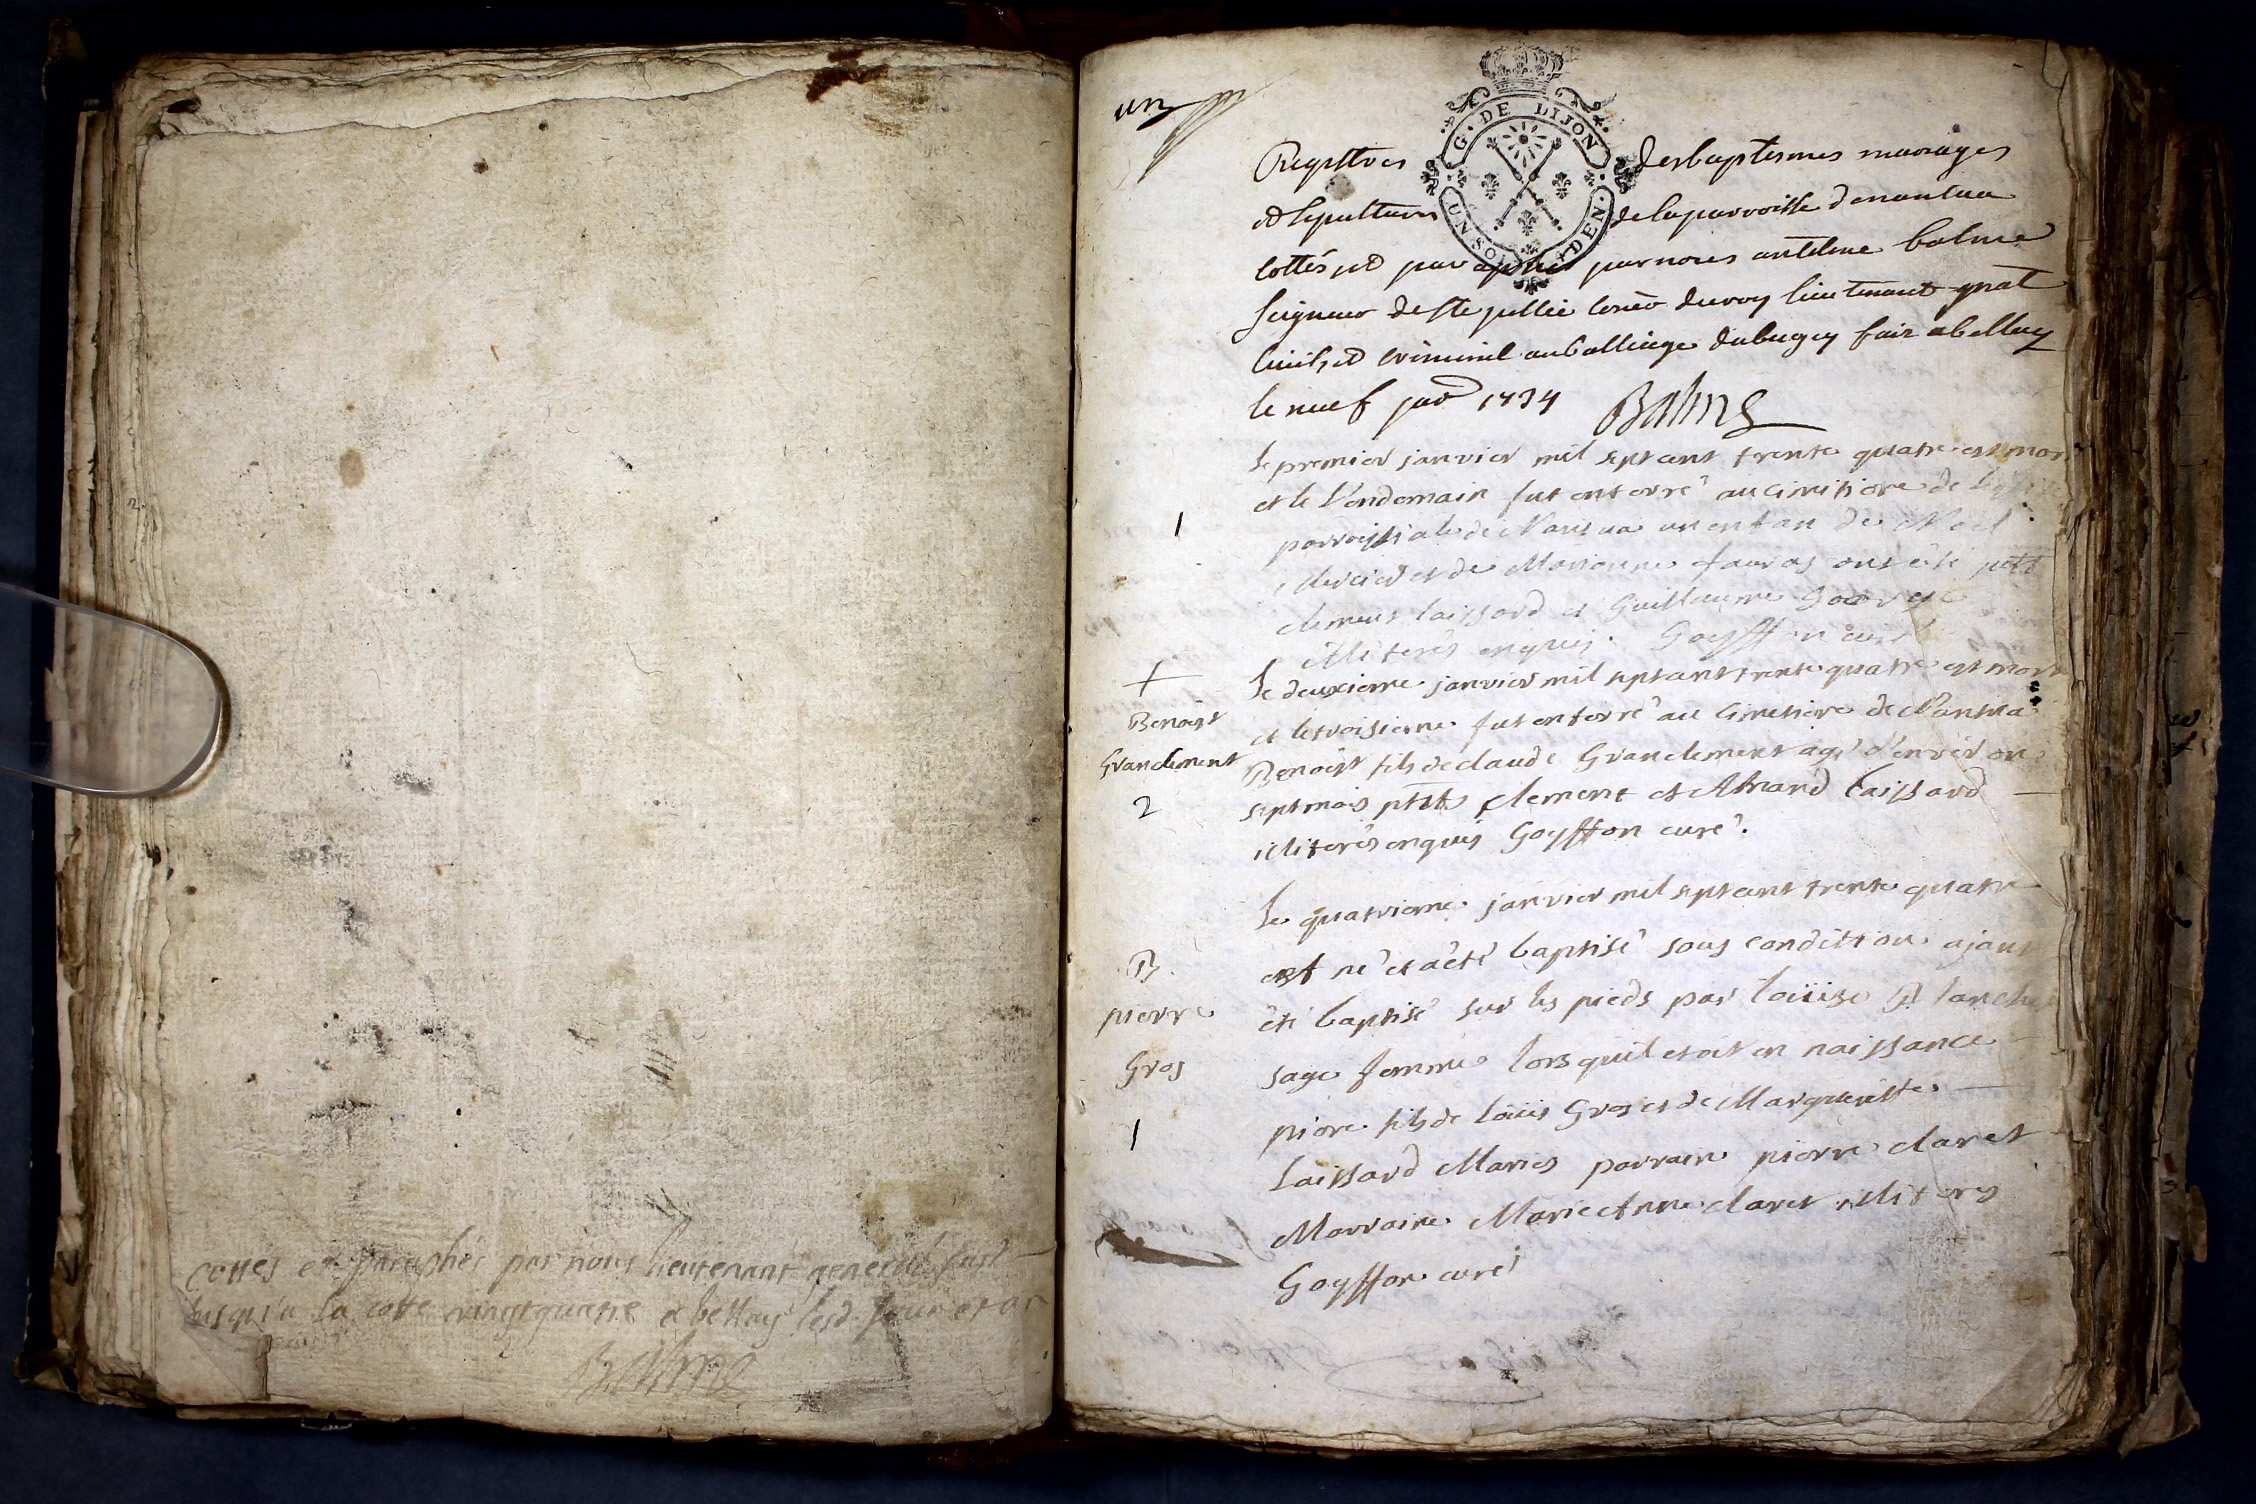 cottés et paraphés par nous lieutenant general fust
jusqu'a la cotte vingtquatre a bellay lesd. jour et an
Balme
un
G. DE DIJON
UN SOL DEN
Registres des baptesmes mariages
et sepultures de la parroisse de nantua
cottés et paraphés par nous antelme balme
seigneur de ste jullie coner du roy lieutenant gnal
civil et criminel au balliage du bugey fait a belley
le neuf janv 1734 Balme
le premier janvier mil sept cent trente quatre est mor
et le l'endemain fut enterré au cimitiere de
parroissiale de Nantua un enfan de Noel
Mercier et de Marianne fauras ont été ptts
1
clement laissard et Guillaume
illiterés enquis. Goyffon curé
+
Benoist
Grandement
2
le deuxieme janvier mil sept cent trente quatre est mort
et le troisieme fut enterré au cimetiere de Nantua
Benoist fils de claude Grandement agé d'environ
sept mois ptts clement et Amand laissard
illiterés enquis Goyffon curé.
B.
pierre
Gros
1
le quatrieme janvier mil sept cent trente quatre
est né et a été baptisé sous condition ajant
été baptisé sur les pieds par loüise
sage femme lors quil etoit en naissance
piere fils de loüis Gros et de Margueritte
Laissard Mariés parrain pierre claret
Marraine Marie Anne claret illiterés
Goyffon curé